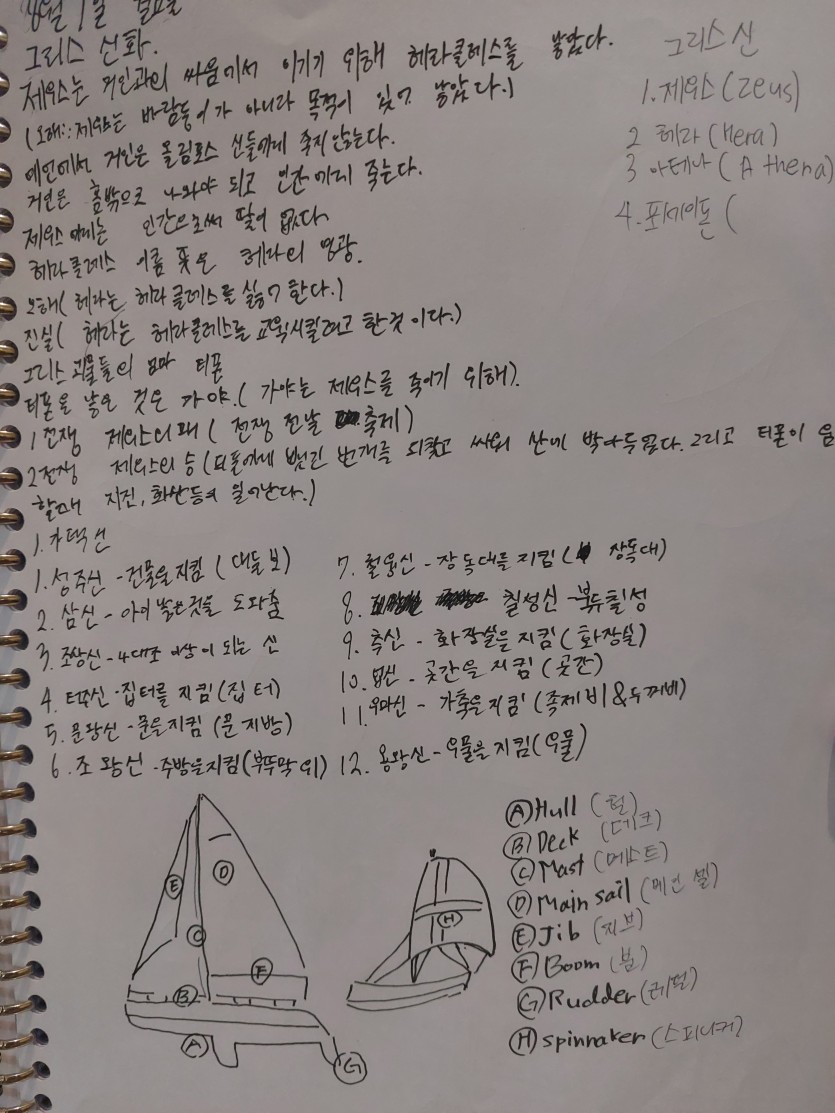 그리스 신화.
제우스는 거인과의 싸움에서 이기기 위해 헤라클레스를 낳았다.
(오해: 제우스는 바람둥이가 아니라 목적이 있어 낳았다.)
예언에서 거인은 올림포스 신들에게 죽지 않는다.
거인은 홈밖으로 나와야 되고 인간에게 죽는다.
제우스에게는 인간으로써 딸이 없다.
헤라클레스 이름 뜻은 헤라의 영광.
오해(헤라는 헤라클레스를 싫어한다.)
진실(헤라는 헤라클레스를 교육시킬려고 한것이다.)
그리스 괴물들의 엄마 티폰
티폰을 낳은 것은 가야.(가야는 제우스를 죽이기 위해).
1전쟁 제우스의 패(전쟁 전날 축제)
2전쟁 제우스의 승(티폰에게 뺏긴 번개를 되찾고 싸워 산에 박아두었다. 그리고 티폰이
할때 지진, 화산등이 일어난다.)
그리스 신
1. 제우스(Zeus)
2 헤라(Hera)
3 아테나(Athena)
4. 포세이돈(
1. 가택신
1. 성주신 - 건물을 지킴(대들보)
2. 삼신 - 아이 낳은것을 도와줌
3. 조상신 - 4대조 이상이 되는 신
4. 터주신 - 집터를 지킴(집터)
5. 문왕신 - 문을지킴(문지방)
6. 조왕신 - 주방을지킴(부뚜막위)
7. 철융신 - 장독대를 지킴(장독대)
8. 칠성신 - 북두칠성
9. 측신 - 화장실을 지킴(화장실)
10. 업신 - 곳간을 지킴(곳간)
11. 우마신 - 가축을지킴(족제비&두꺼비)
12. 용왕신 - 우물을 지킴(우물)
Ⓐ Hull (헐)
Ⓑ Deck (데크)
Ⓒ Mast (메스트)
Ⓓ Main sail (메인 셀)
Ⓔ Jib (지브)
Ⓕ Boom (붐)
Ⓖ Rudder (러덜)
Ⓗ spinnaker (스피니커)
Ⓔ
Ⓓ
Ⓒ
Ⓕ
Ⓑ
Ⓐ
Ⓖ
Ⓗ